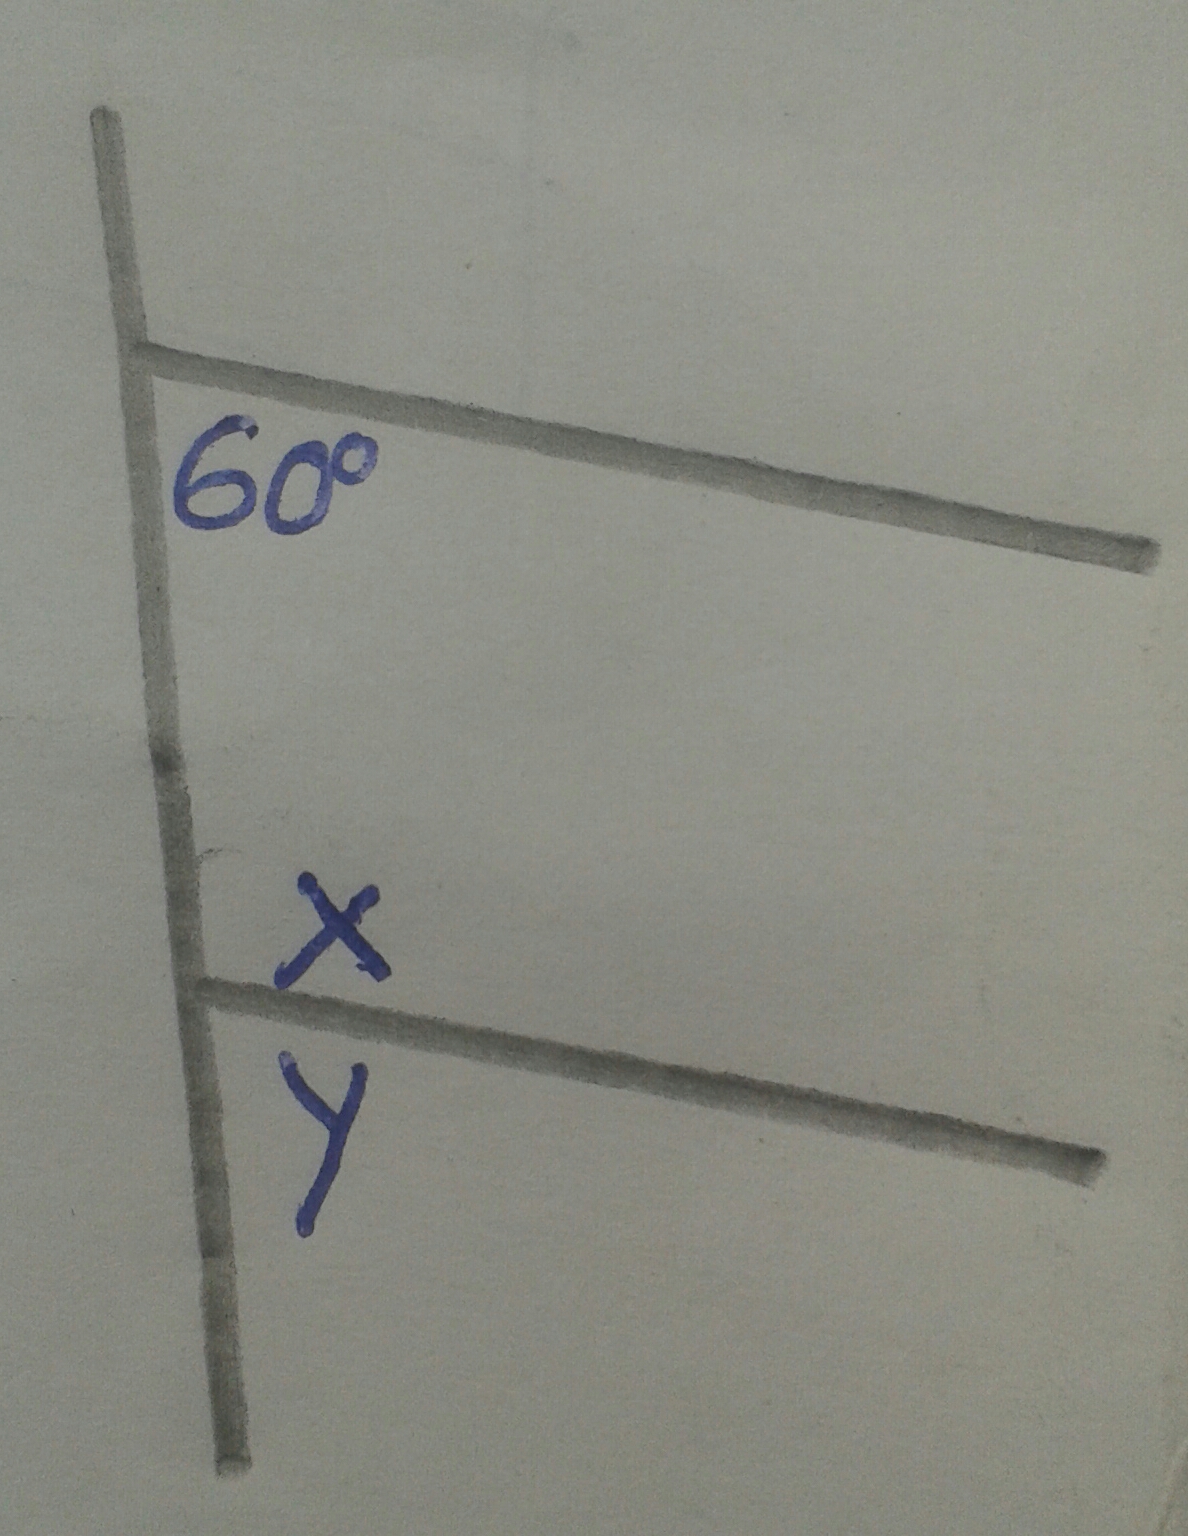 60°
x
y